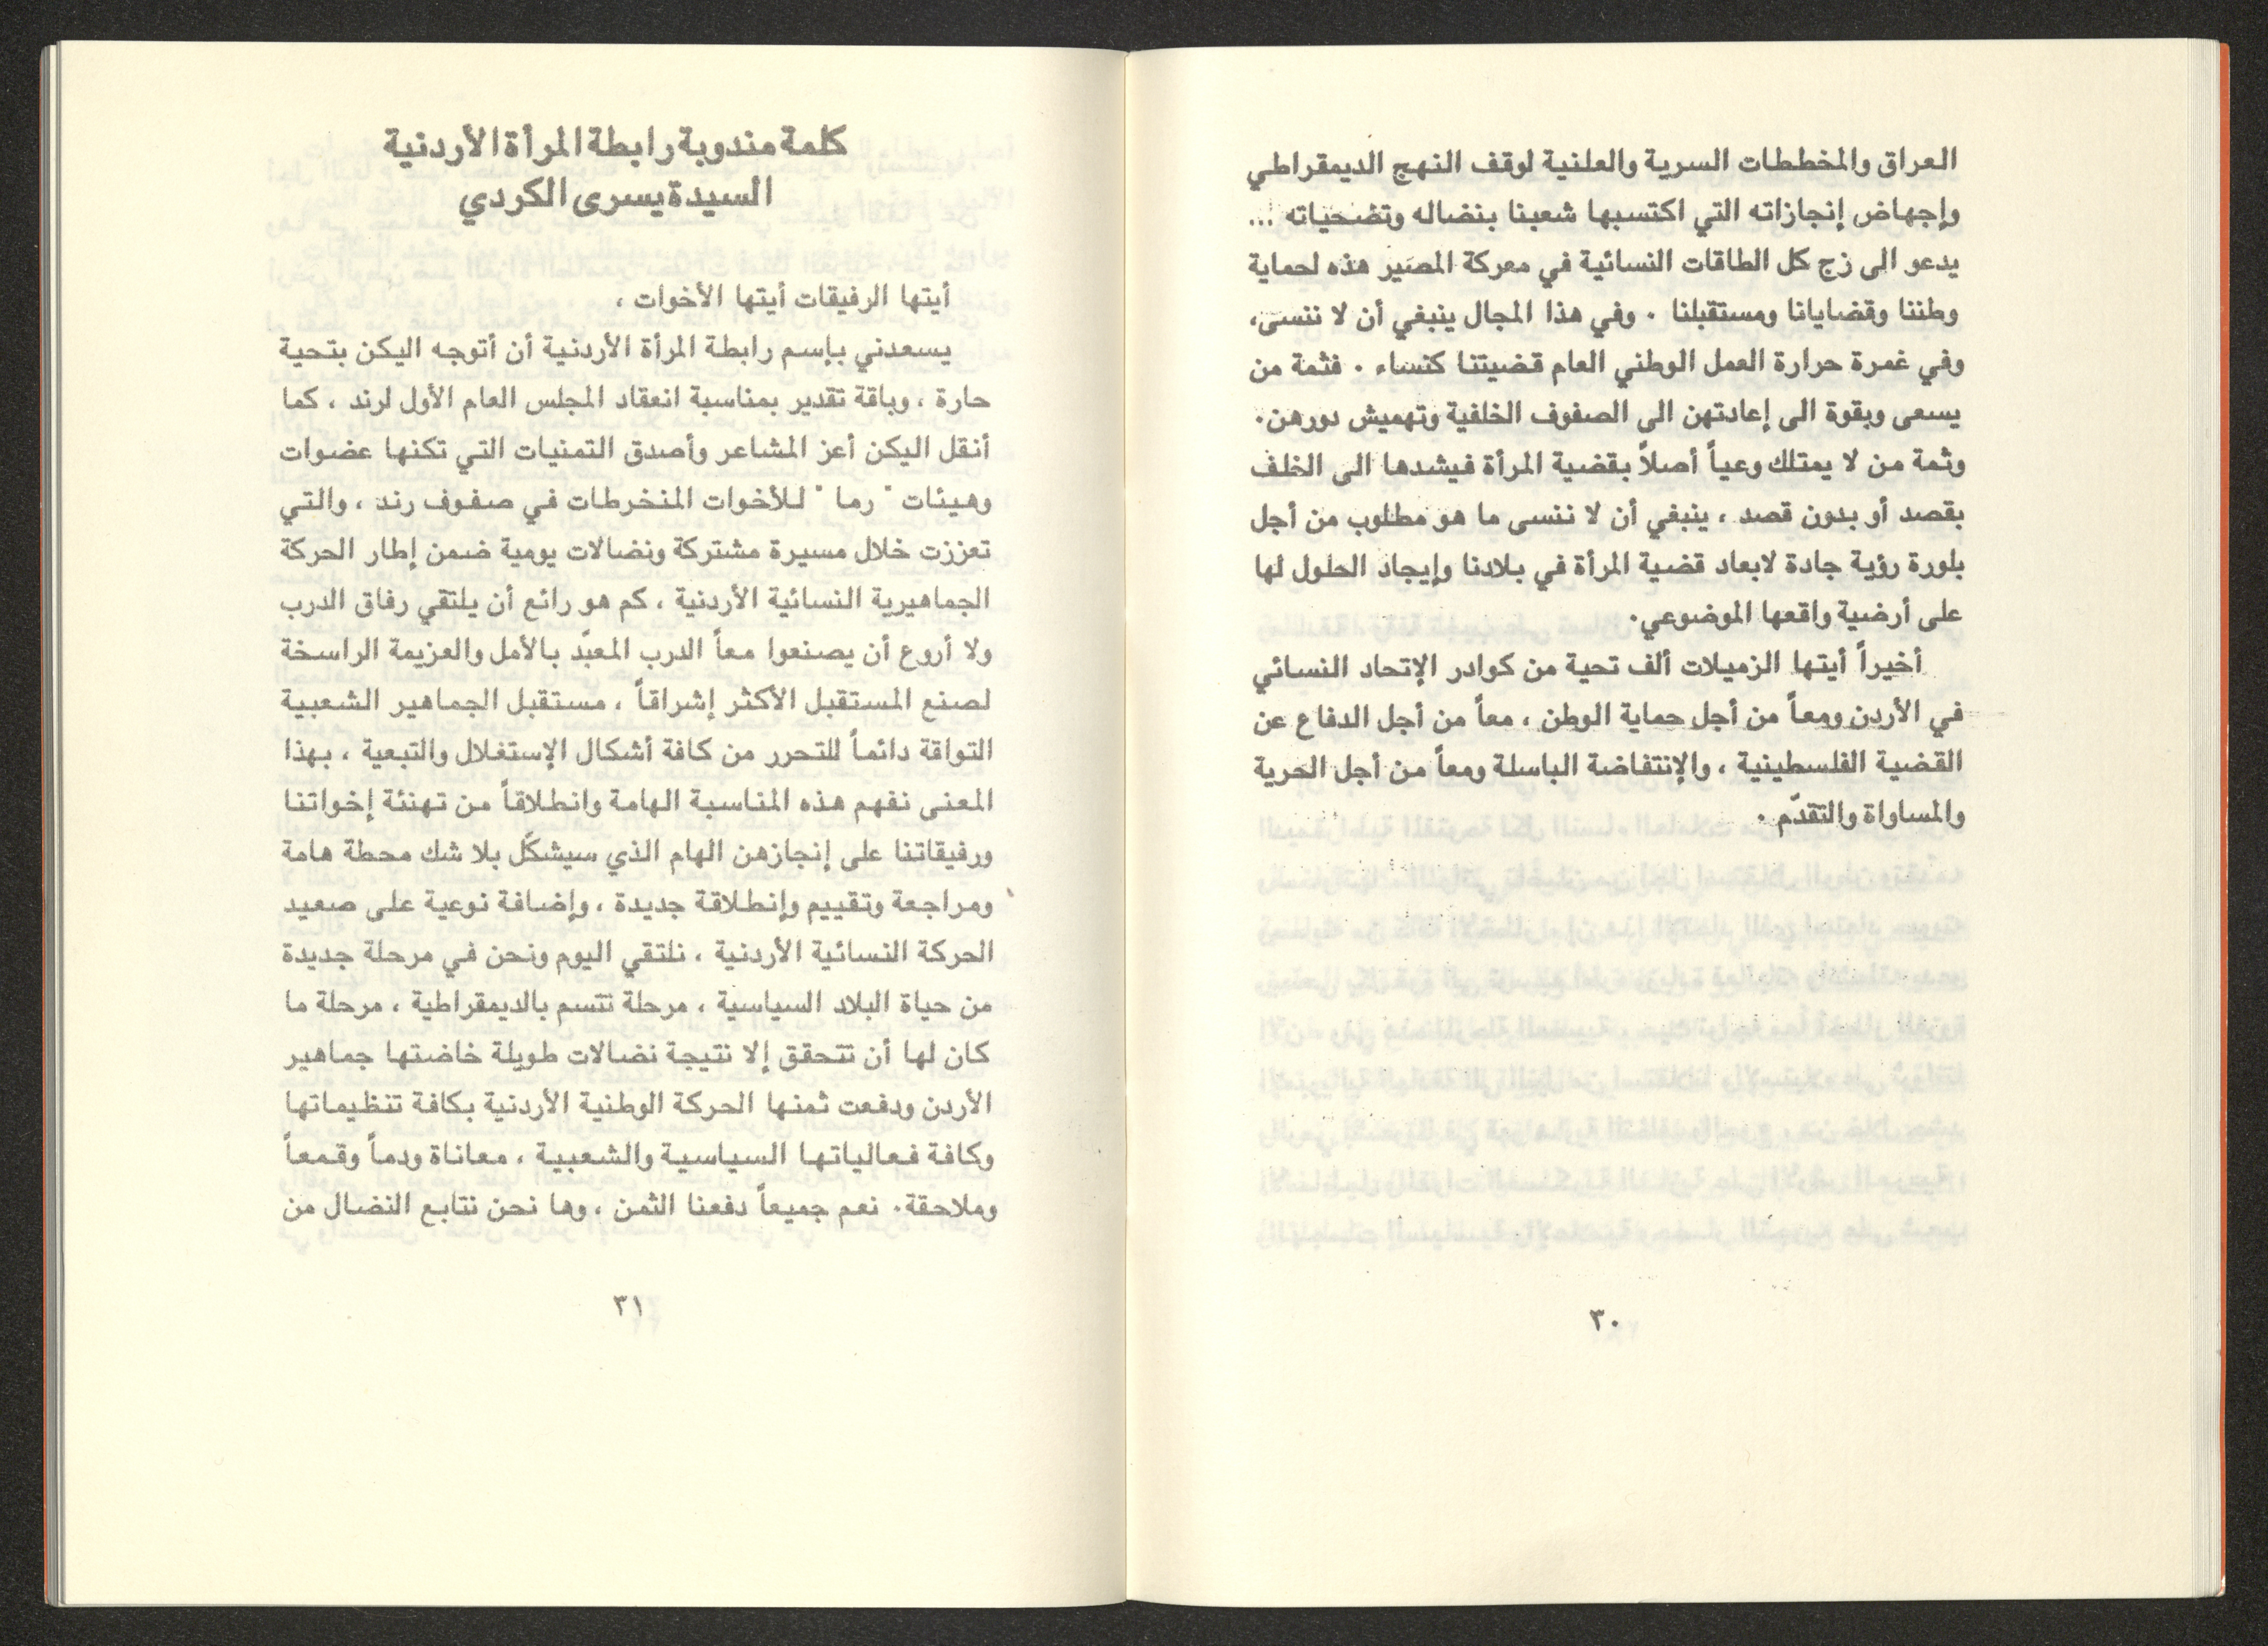 العراق والمخططات السرية والعلنية لوقف النهج الديمقراطي
وإجهاض إنجازاته التي اكتسبها شعبنا بنضاله وتضحياته ...
يدعو الى زج كل الطاقات النسائية في معركة المصير هذه لحماية
وطننا وقضايانا ومستقبلنا . وفي هذا المجال ينبغي أن لا ننسى،
وفي غمرة حرارة العمل الوطني العام قضيتنا كنساء . فثمة من
يسعى وبقوة الى إعادتهن الى الصفوف الخلفية وتهميش دورهن.
وثمة من لا يمتلك وعياً أصلاً بقضية المرأة فيشدها الى الخلف
بقصد أو بدون قصد ، ينبغي أن لا ننسى ما هو مطلوب من أجل
بلورة رؤية جادة لابعاد قضية المرأة في بلادنا وإيجاد الحلول لها
على أرضية واقعها الموضوعي.
أخيراً أيتها الزميلات ألف تحية من كوادر الإتحاد النسائي
في الأردن ومعاً من أجل حماية الوطن ، معاً من أجل الدفاع عن
القضية الفلسطينية ، والإنتفاضة الباسلة ومعاً من أجل الحرية
والمساواة والتقدّم .
٣٠
كلمة مندوبة رابطة المرأة الأردنية
السيدة يسرى الكردي
أيتها الرفيقات أيتها الأخوات ،
يسعدني بإسم رابطة المرأة الأردنية أن أتوجه اليكن بتحية
حارة ، وباقة تقدير بمناسبة انعقاد المجلس العام الأول لرند ، كما
أنقل اليكن أعز المشاعر وأصدق التمنيات التي تكنها عضوات
وهيئات " رما " للأخوات المنخرطات في صفوف رند ، والتي
تعززت خلال مسيرة مشتركة ونضالات يومية ضمن إطار الحركة
الجماهيرية النسائية الأردنية ، كم هو رائع أن يلتقي رفاق الدرب
ولا أروع أن يصنعوا معاً الدرب المعبّد بالأمل والعزيمة الراسخة
لصنع المستقبل الأكثر إشراقاً ، مستقبل الجماهير الشعبية
التواقة دائماً للتحرر من كافة أشكال الإستغلال والتبعية ، بهذا
المعنى نفهم هذه المناسبة الهامة وانطلاقاً من تهنئة إخواتنا
ورفيقاتنا على إنجازهن الهام الذي سيشكّل بلا شك محطة هامة
ومراجعة وتقييم وإنطلاقة جديدة ، وإضافة نوعية على صعيد
الحركة النسائية الأردنية ، نلتقي اليوم ونحن في مرحلة جديدة
من حياة البلاد السياسية ، مرحلة تتسم بالديمقراطية ، مرحلة ما
كان لها أن تتحقق إلا نتيجة نضالات طويلة خاضتها جماهير
الأردن ودفعت ثمنها الحركة الوطنية الأردنية بكافة تنظيماتها
وكافة فعالياتها السياسية والشعبية ، معاناة ودماً وقمعاً
وملاحقة. نعم جميعاً دفعنا الثمن ، وها نحن نتابع النضال من
٣١